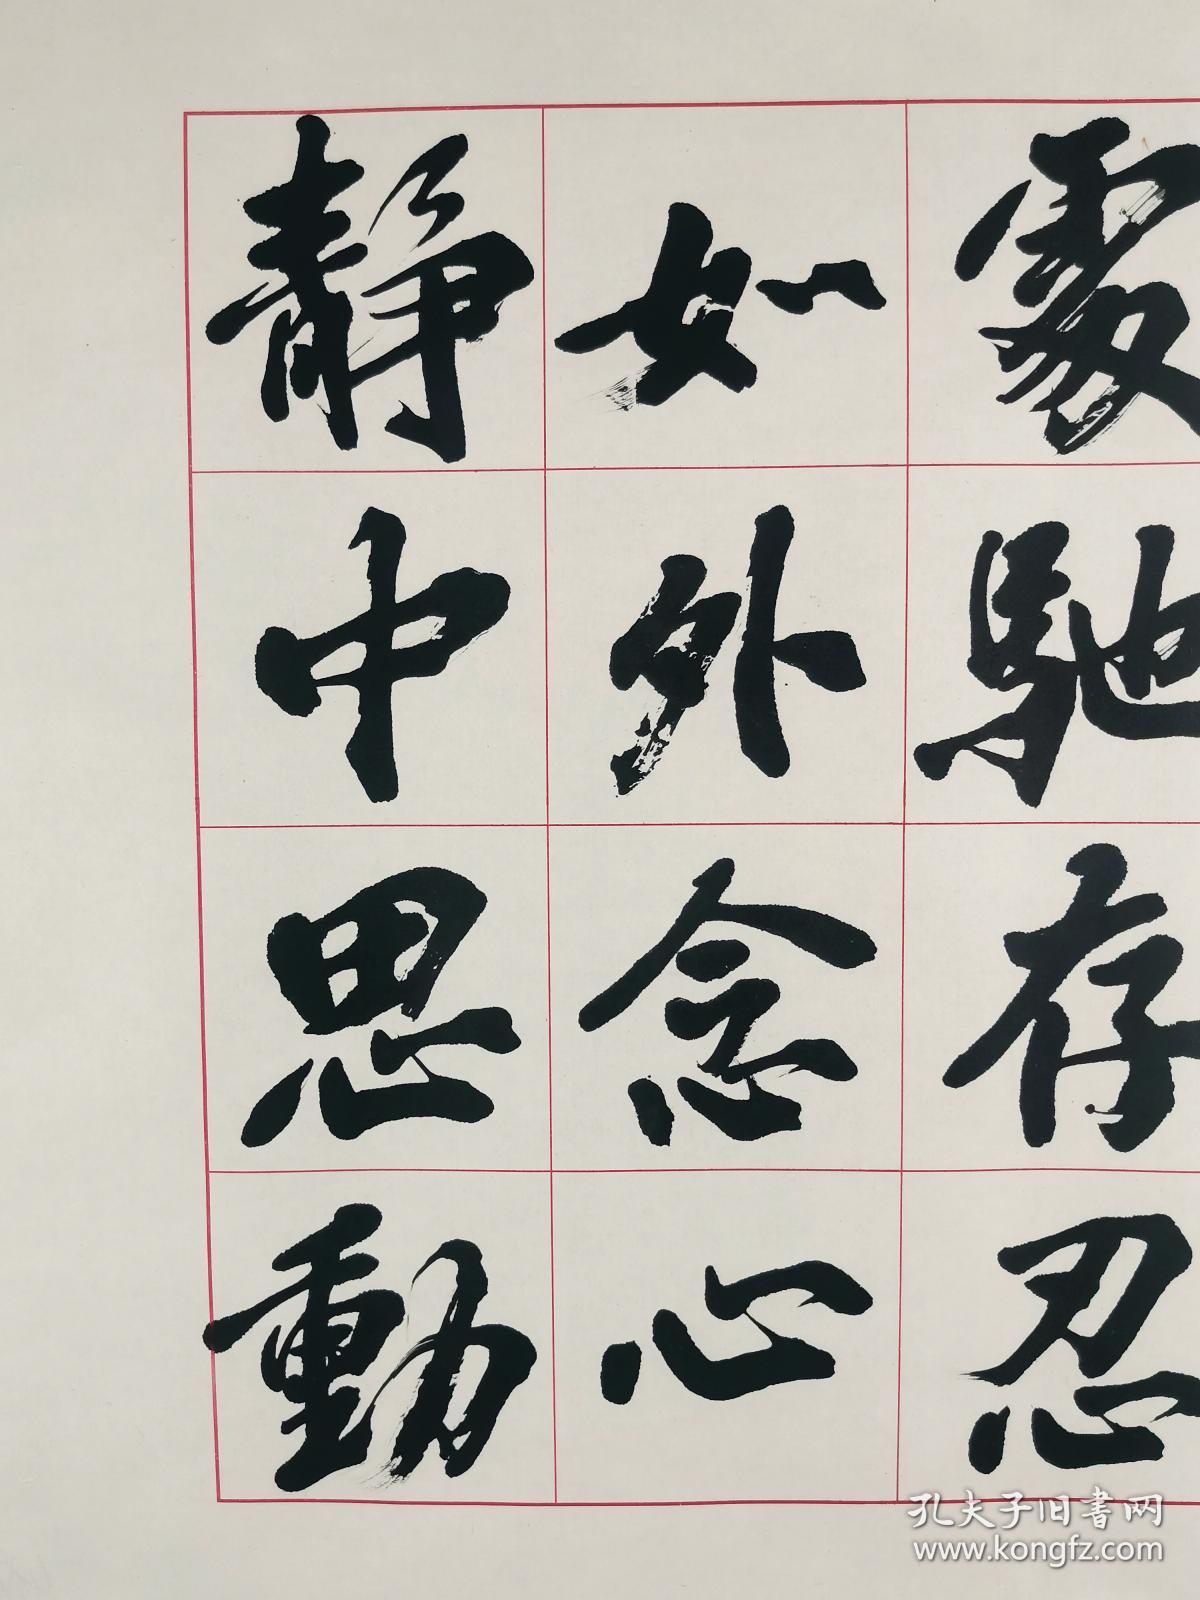 馳存忍
如外念心
静中思動
孔夫子旧书网
www.kongfz.com